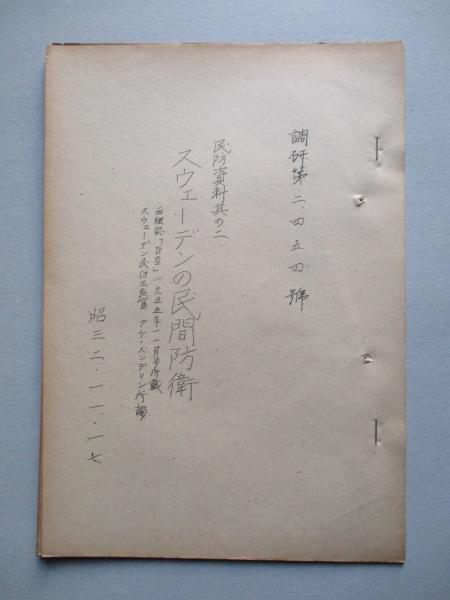 調研第二、四五四號
民防資料其の二
スウェーデンの民間防衛
西独誌「防空」一九五五年一一月号所載
スウェーデン民防卫長官 アケ・ズンデリン所論
昭三二・一一・一七